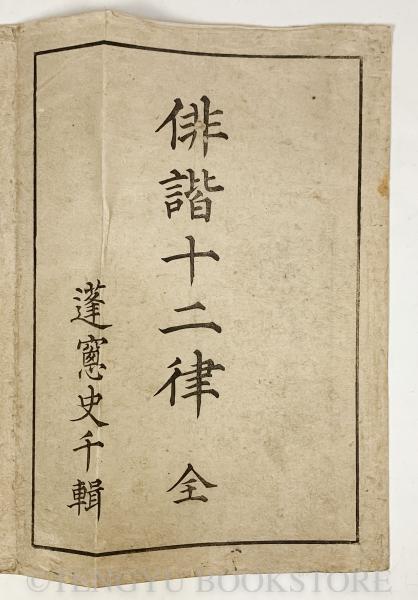 俳諧十二律 全
蓬窓史千輯
©TENGYU BOOKSTORE